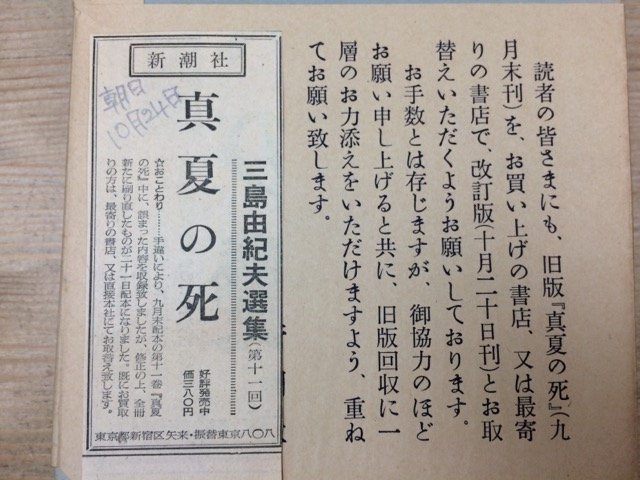 読者の皆さまにも、旧版『真夏の死』(九
月末刊)を、お買い上げの書店、又は最寄
りの書店で、改訂版(十月二十日刊)とお取
替えいただくようお願いしております。
お手数とは存じますが、御協力のほど
お願い申し上げると共に、旧版回収に一
層のお力添えをいただけますよう、重ね
てお願い致します。
新潮社
朝日
10月24日
三島由紀夫選集(第十一回)
真夏の死
好評発売中
価三八〇円
☆おことわり……手違いにより、九月末配本の第十一巻『真夏
の死』中に、誤まった内容を収録致しましたが、修正の上、全冊
新たに刷り直したものが二十一日配本になりました。既にお買取
りの方は、最寄りの書店、又は直接本社にてお取替え致します。
東京都新宿区矢来・振替東京八〇八